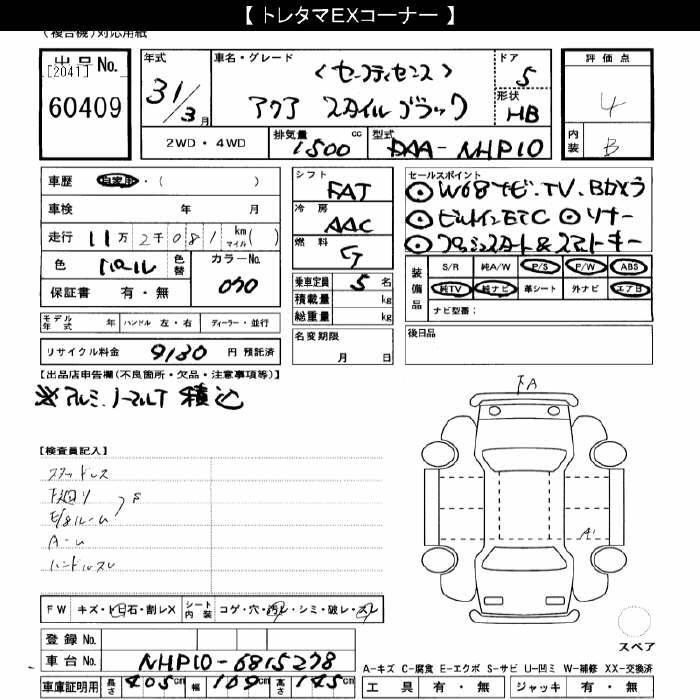 【 トレタマEXコーナー 】
(複合機)対応用紙
出品No.
[2041]
60409
年式
31/3月
車名・グレード
〈セーフティセンス〉
アクア スタイルブラック
ドア
5
形状
HB
2WD・4WD
排気量
1500 cc
型式
DAA-NHP10
評価点
4
内装
B
車歴 自家用・( )
車検 年 月
走行 11万2千081 km マイル( )
色 パール 色替
カラーNo.
070
保証書 有・無
シフト
FAT
冷房
AAC
燃料
G
乗車定員 5名
積載量 kg
総重量 kg
名変期限
月 日
セールスポイント
◎W68ナビ.TV.Bカメラ
◎ビルトインETC ◎ソナー
◎プッシュスタート&スマートキー
装備品
S/R 純A/W P/S P/W ABS
純TV 純ナビ 革シート 外ナビ エアB
ナビ型番:
後日品
モデル年式 年 ハンドル 左・右 ディーラー・並行
リサイクル料金 9130 円 預託済
【出品店申告欄(不良箇所・欠品・注意事項等)】
※アルミ.ノーマルT 積込
【検査員記入】
スタッドレス
下廻り
E/gルーム
S
Aーム
ハンドルスレ
FA
A1
スペア
FW キズ・ヒ石・割レX シート内装 コゲ・穴・汚レ・シミ・破レ・スレ
登録No.
車台No. NHP10-6815278
車庫証明用 長さ 405cm 幅 169cm 高さ 145cm
A-キズ C-腐食 E-エクボ S-サビ U-凹ミ W-補修 XX-交換済
工具 有・無 ジャッキ 有・無